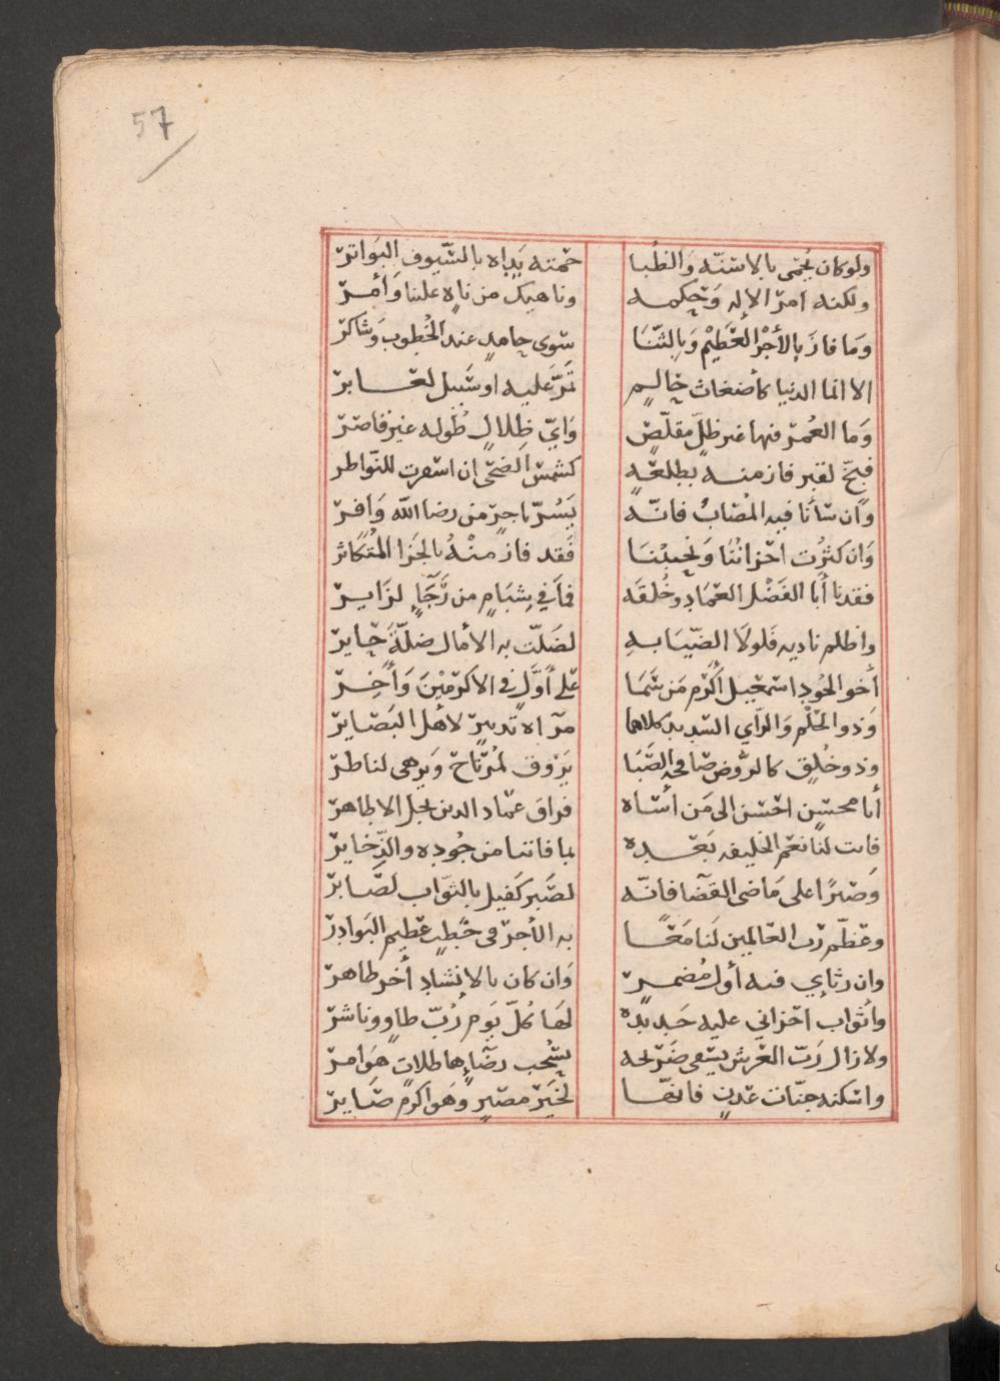 57
ولو كان يُحمى بالاسنّه وَالظُبا حمته يَداه بالسّيوف البَواتر
ولكنه امرُ الإله وَحكمه وناهيك من ناهٍ علينا وَأمر
وَما فازَ بالأجْر العَظيْم وَبالثّنَا سوى حامدٍ عند الخُطوب وَشاكر
الا انما الدنيا كأضغاث حالمٍ تَمرّ عَليه او سَبيل لعابر
وَما العُمر فيها غير ظلّ مقلّصٍ وَايّ ظِلالٍ طُوله غير قاصر
فبخّ لقبر فاز منه بطلعةٍ كشمس الضحَى ان اسفرت للنّواظر
وَان سَأنا فيه المُصَابُ فانّه يَسُرّ باجرٍ من رضا الله وَافر
وَان كثُرت احزانُنَا وَنحيبُنَا فَقد فاز منْهُ بالجَزا المُتكاثر
فقدنا أبا الفَضْل العمَاد وخُلقَه فما في شبَامٍ من رَجَاءٍ لزَاير
واظلم ناديه فَلولا الضّيَا به لضَلّت به الآمال ضلّةَ حَاير
أخو الجُود اسمعيل أكرَم مَن سَمَا عَلى أوّلٍ في الاكرَميْنَ وَأخِر
وَذو الحْلْم وَالرَأي السّديد كلاهما مرَاه تدبيرٍ لأهل البَصَاير
وذو خُلقٍ كالرّوض صَافحه الصَّبَا يَرُوق لمُرتَاحٍ وَيزهى لناظر
أيا محسن احسَن الى مَن أسَاه فراق عمَاد الدين نجل الاطاهر
فانت لنَا نعْم الخليفه بَعْده لما فاتنا من جُوده والذّخاير
وَصَبرًا على مَاضى القَضَا فانّه لصَبر كَفيل بالثوَاب لصَابر
وعَظّم رَبّ العَالمين لَنا مَعًا به الأجرَ في خَطبٍ عَظيم البَوادر
وان رثاءي فيه أول مُضمرٍ وَان كان بالإنشاد أخر ظاهر
وأثواب احزاني عليه جَديدةٌ لهَا كلّ يَوم رُبّ طاوٍ وناشر
ولا زال رَبّ العَرش يسَقى ضَريحَه بسُحب رضَاءٍ هاطلاتٍ هَوَامر
واسكنه جنّات عَدنٍ فانّها لخَيرُ مَصيرٍ وَهو اكرم صَاير